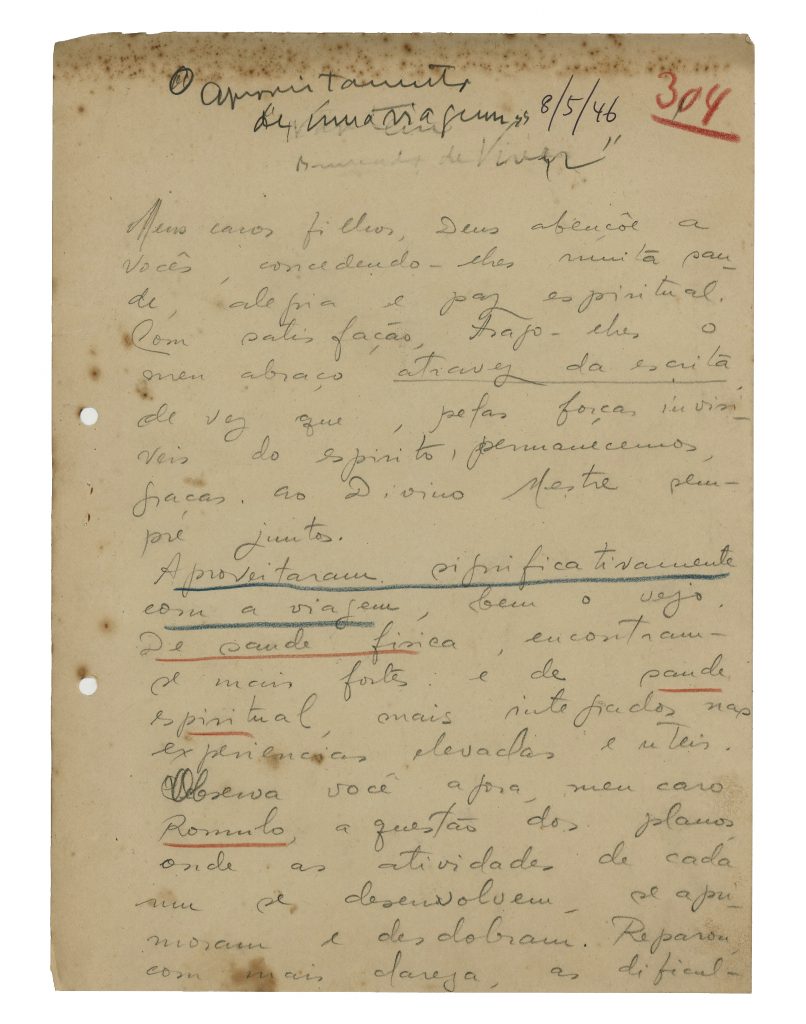 O Aproveitamento
de uma viagem" 8/5/46 304
de Viver"
Meus caros filhos, Deus abençôe a
vocês, concedendo-lhes muita sau-
de, alegria e paz espiritual.
Com satisfação, trago-lhes o
meu abraço atravez da escrita,
de vez que, pelas forças invisi-
veis do espirito, permanecemos,
graças ao Divino Mestre sem-
pre juntos.
Aproveitaram significativamente
com a viagem, bem o vejo.
De saude fisica, encontram-
se mais fortes e de saude
espiritual, mais integrados nas
experiencias elevadas e uteis.
Observa você agora, meu caro
Romulo, a questão dos planos
onde as atividades de cada
um se desenvolvem, se apri-
moram e desdobram. Reparou,
com mais clareza, as dificul-